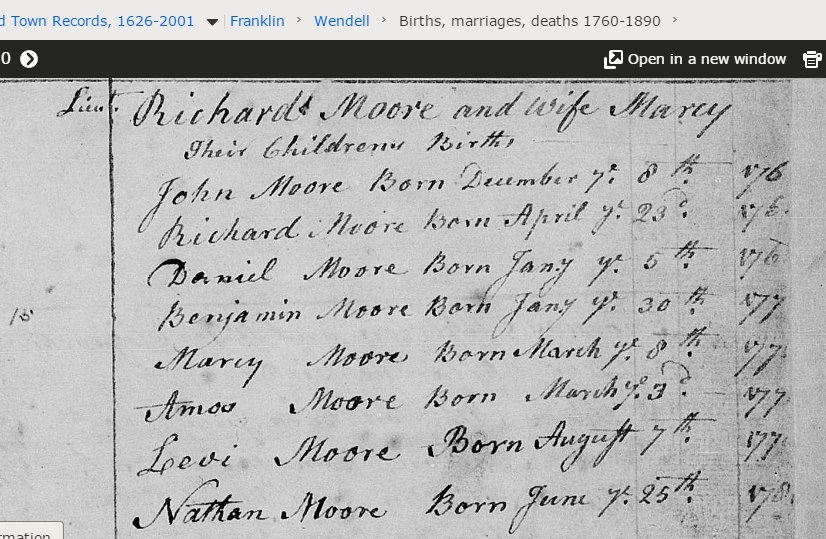 d Town Records, 1626-2001 Franklin › Wendell › Births, marriages, deaths 1760-1890 ›
0 Open in a new window
Lieut. Richard Moore and Wife Marcy
Their Childrens Births
John Moore Born December ye. 8th. 176
Richard Moore Born April ye. 23d. 176
Daniel Moore Born Jany ye. 5th. 176
Benjamin Moore Born Jany ye. 30th. 177
Marcy Moore Born March ye. 8th. 177
Amos Moore Born March ye. 3d. 177
Levi Moore Born August 7th. 177
Nathan Moore Born June ye. 25th. 178
rmation